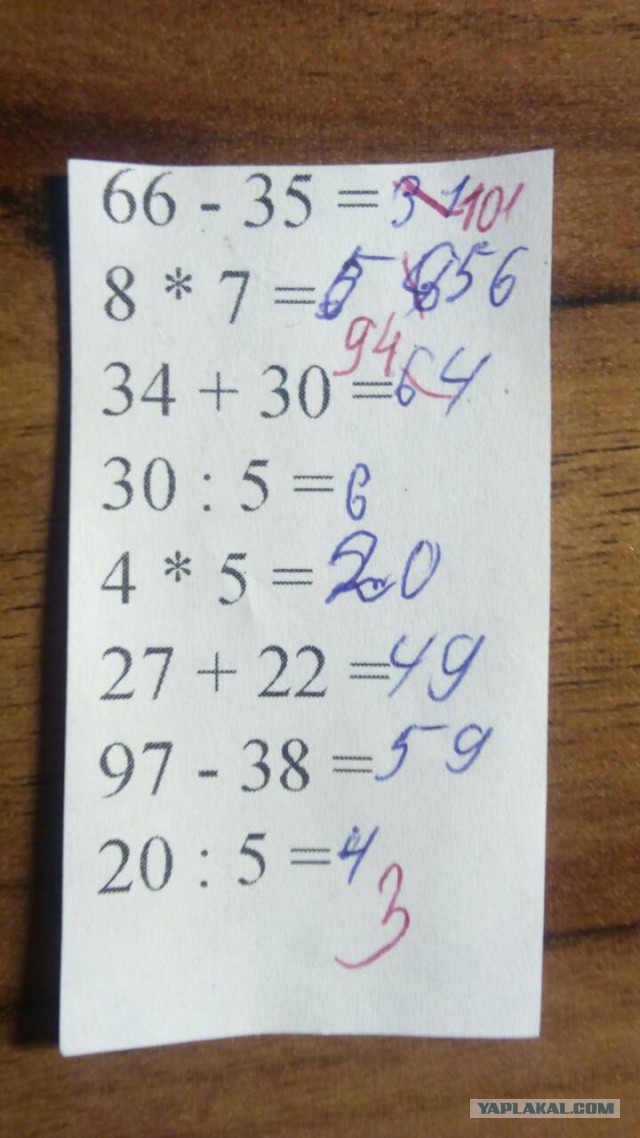 66 - 35 = 31 101
8 * 7 = 56 56
94
34 + 30 = 64
30 : 5 = 6
4 * 5 = 20
27 + 22 = 49
97 - 38 = 59
20 : 5 = 4
3
YAPLAKAL.COM